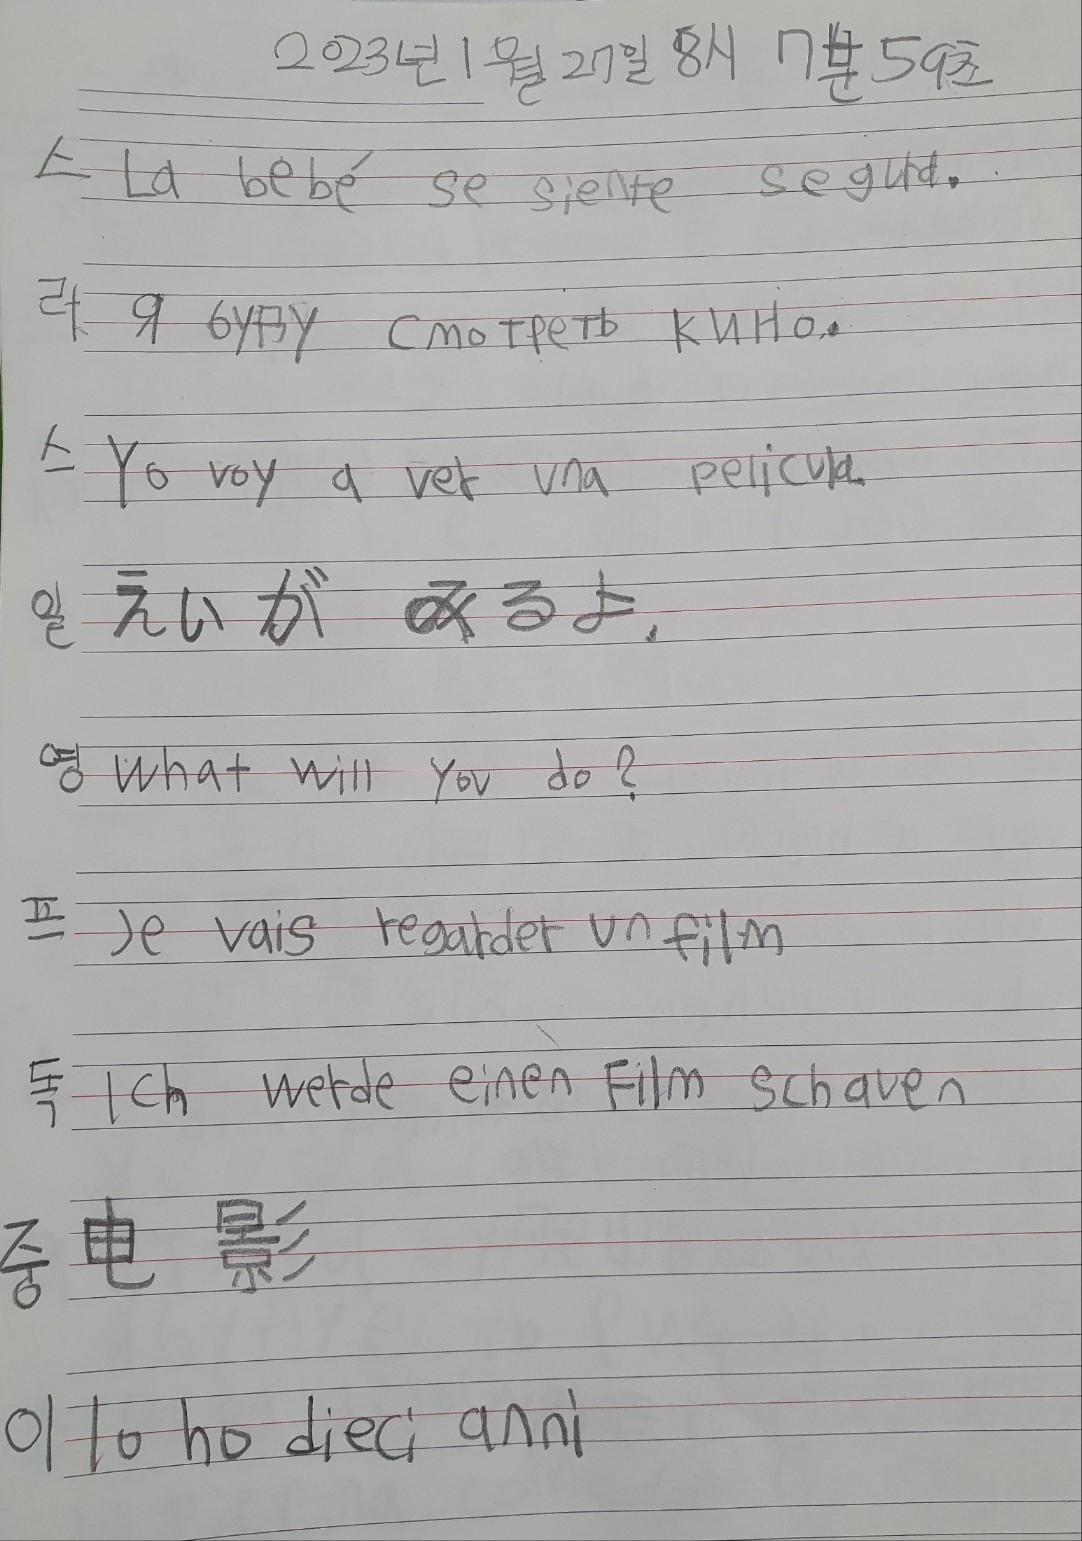 2023년 1월 27일 8시 7분 59초
스 La bebé se siente segura.
라 Я буду смотреть кино.
스 Yo voy a ver una pelicula.
일 えいが みるよ.
영 What will you do?
프 Je vais regarder un film
독 Ich werde einen Film schauen
중 电 影
이 Io ho dieci anni